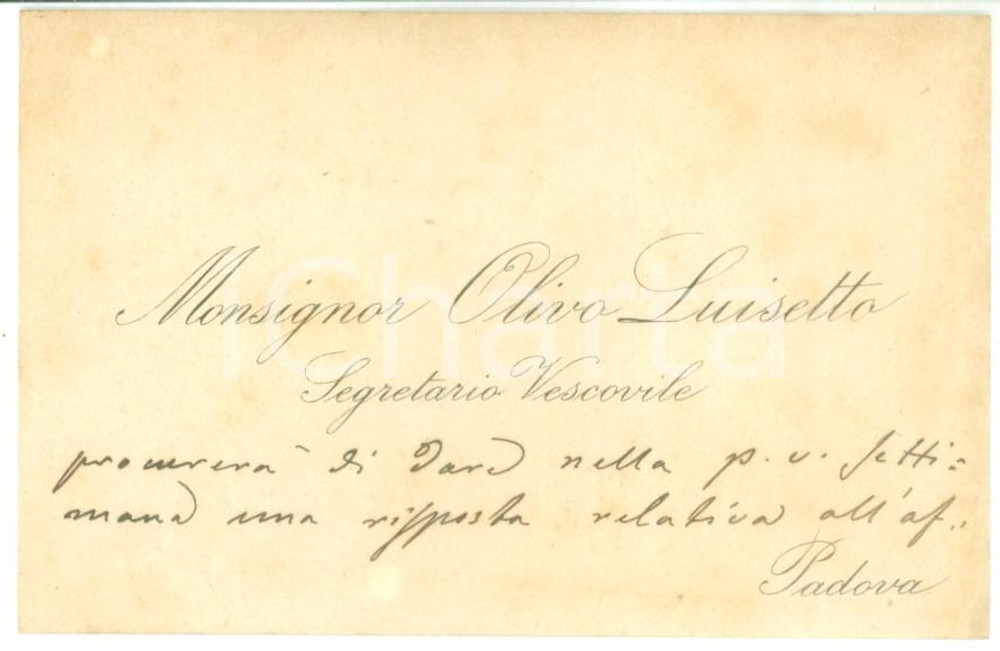 Monsignor Olivo Luisetto
Segretario Vescovile
procurerà di dare nella p. v. setti=
mana una risposta relativa all'af..
Padova
iCharta